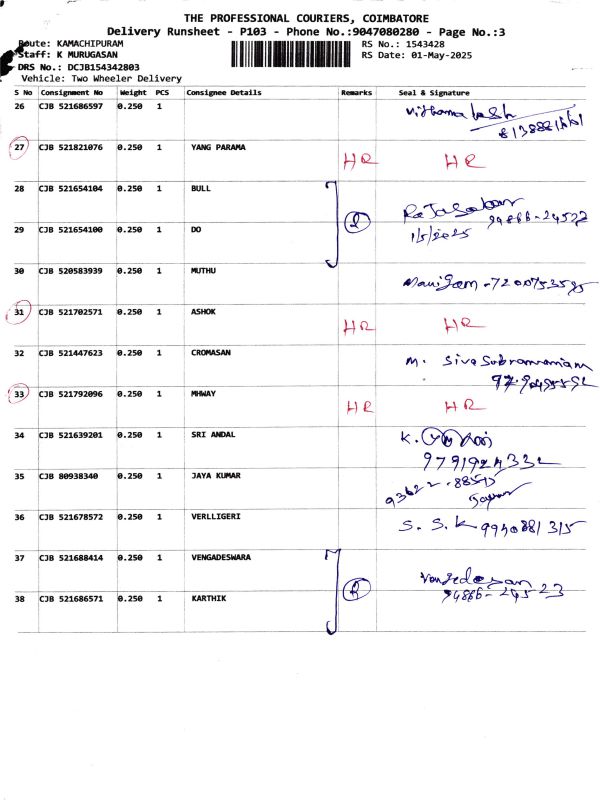 THE PROFESSIONAL COURIERS, COIMBATORE
Delivery Runsheet - P103 - Phone No.:9047080280 - Page No.:3
Route: KAMACHIPURAM RS No.: 1543428
Staff: K MURUGASAN RS Date: 01-May-2025
DRS No.: DCJB154342803
Vehicle: Two Wheeler Delivery
S No Consignment No Weight PCS Consignee Details Remarks Seal & Signature
26 CJB 521686597 0.250 1
27 CJB 521821076 0.250 1 YANG PARAMA HR HR
28 CJB 521654104 0.250 1 BULL
29 CJB 521654100 0.250 1 DO
1/5/2025
30 CJB 520583939 0.250 1 MUTHU
31 CJB 521702571 0.250 1 ASHOK HR HR
32 CJB 521447623 0.250 1 CROMASAN M. Siva Subramaniam
33 CJB 521792096 0.250 1 MHWAY HR HR
34 CJB 521639201 0.250 1 SRI ANDAL K.
35 CJB 80938340 0.250 1 JAYA KUMAR
36 CJB 521678572 0.250 1 VERLLIGERI S. S. K 9940881315
37 CJB 521688414 0.250 1 VENGADESWARA
38 CJB 521686571 0.250 1 KARTHIK